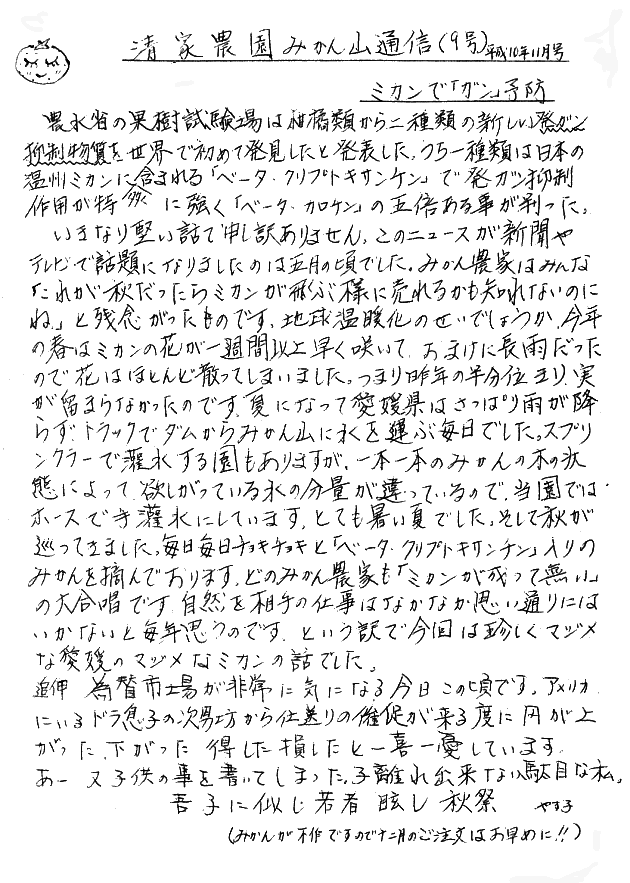 清家農園みかん山通信(9号)平成10年11月号
ミカンで「ガン」予防
農水省の果樹試験場は柑橘類から二種類の新しい発ガン
抑制物質を世界で初めて発見したと発表した。うち一種類は日本の
温州ミカンに含まれる「ベータ・クリプトキサンチン」で発ガン抑制
作用が特に強く「ベータ・カロチン」の五倍ある事が判った。
いきなり堅い話で申し訳ありません。このニュースが新聞や
テレビで話題になりましたのは五月の頃でした。みかん農家はみんな
「これが秋だったらミカンが飛ぶ様に売れるかも知れないのに
ね。」と残念がったものです。地球温暖化のせいでしょうか、今年
の春はミカンの花が一週間以上早く咲いて、おまけに長雨だった
ので花はほとんど散ってしまいました。つまり昨年の半分位しか、実
が留まらなかったのです。夏になって愛媛県はさっぱり雨が降
らず、トラックでダムからみかん山に水を運ぶ毎日でした。スプリ
ンクラーで灌水する園もありますが、一本一本のみかんの木の状
態によって、欲しがっている水の分量が違っているので、当園では
ホースで手灌水にしています。とても暑い夏でした。そして秋が
巡ってきました。毎日毎日チョキチョキと「ベータ・クリプトキサンチン」入りの
みかんを摘んでおります。どのみかん農家も「ミカンが成って無い」
の大合唱です。自然を相手の仕事はなかなか思い通りには
いかないと毎年思うのです。という訳で今回は珍しくマジメ
な愛媛のマジメなミカンの話でした。
追伸 為替市場が非常に気になる今日この頃です。アメリカ
にいるドラ息子の次男坊から仕送りの催促が来る度に円が上
がった、下がった 得した損したと一喜一憂しています。
あー 又子供の事を書いてしまった。子離れ出来ない駄目な私。
吾子に似し若者眩し秋祭 やす子
(みかんが不作ですので十二月のご注文はお早めに!!)